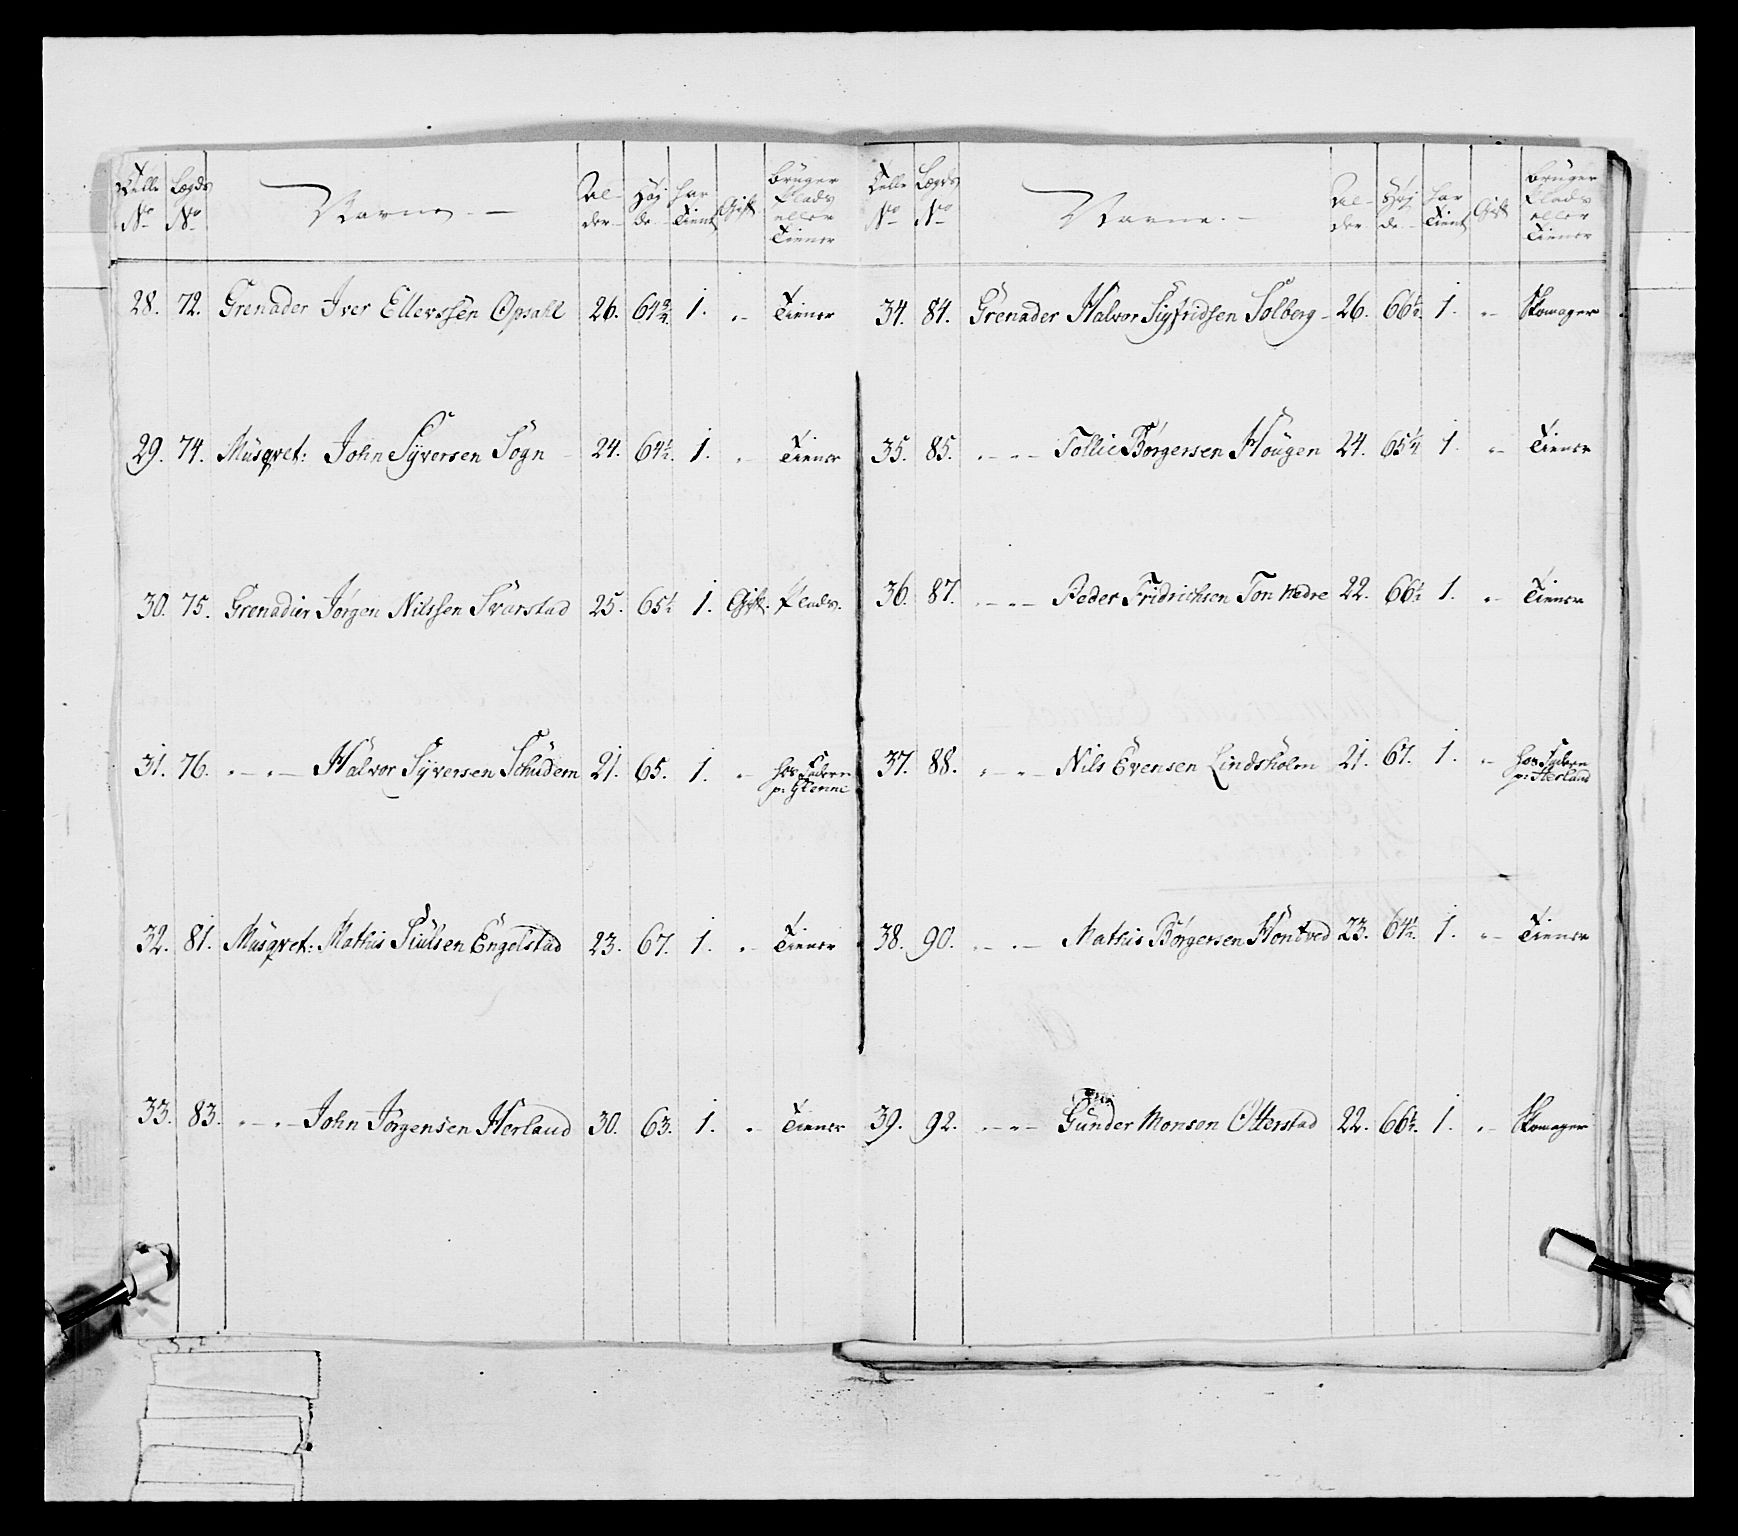 Telle No | Lægds No | Navne. | Al-der | Höj-de | har Tient | Gift | Bruger Plads eller Tiener
28. 72. Grenader Iver Ellevssen Opsahl 26. 64 1. „ Tiener
29. 74. Musqvet: John Syversen Sogn 24. 64½ 1. „ Tiener
30. 75. Grenadier Jørgen Nilssen Svarstad 25. 65½ 1. Gift. Plads.
31. 76. „ — „ — Halvor Syversen Schüdem 21. 65. 1. „ hos Federn
p: Glenne
32. 81. Musqvet: Mathis Siulsen Engelstad 23. 67. 1. „ Tiener
33. 83. „ — „ — John Jørgensen Herland 30. 63. 1. „ Tiener
Telle No | Lægds No | Navne. | Al-der | Höj-de | har Tient | Gift | Bruger Plads eller Tiener
34. 84. Grenader Halvor Sigfridsen Solberg 26. 66½ 1. „ Skomager
35. 85. „ — „ — Tollic Børgersen Hougen 24. 65¼ 1. „ Tiener
36. 87. „ — „ — Peder Fridrichsen Ton nedre 22. 66½ 1. „ Tiener
37. 88. „ — „ — Nils Evensen Lindsholm 21. 67. 1. „ hos Federn
p: Herland
38. 90. „ — „ — Mathis Børgersen Hontved 23. 64½ 1. „ Tiener
39. 92. „ — „ — Gunder Monson Otterstad 22. 66½ 1. „ Skomager